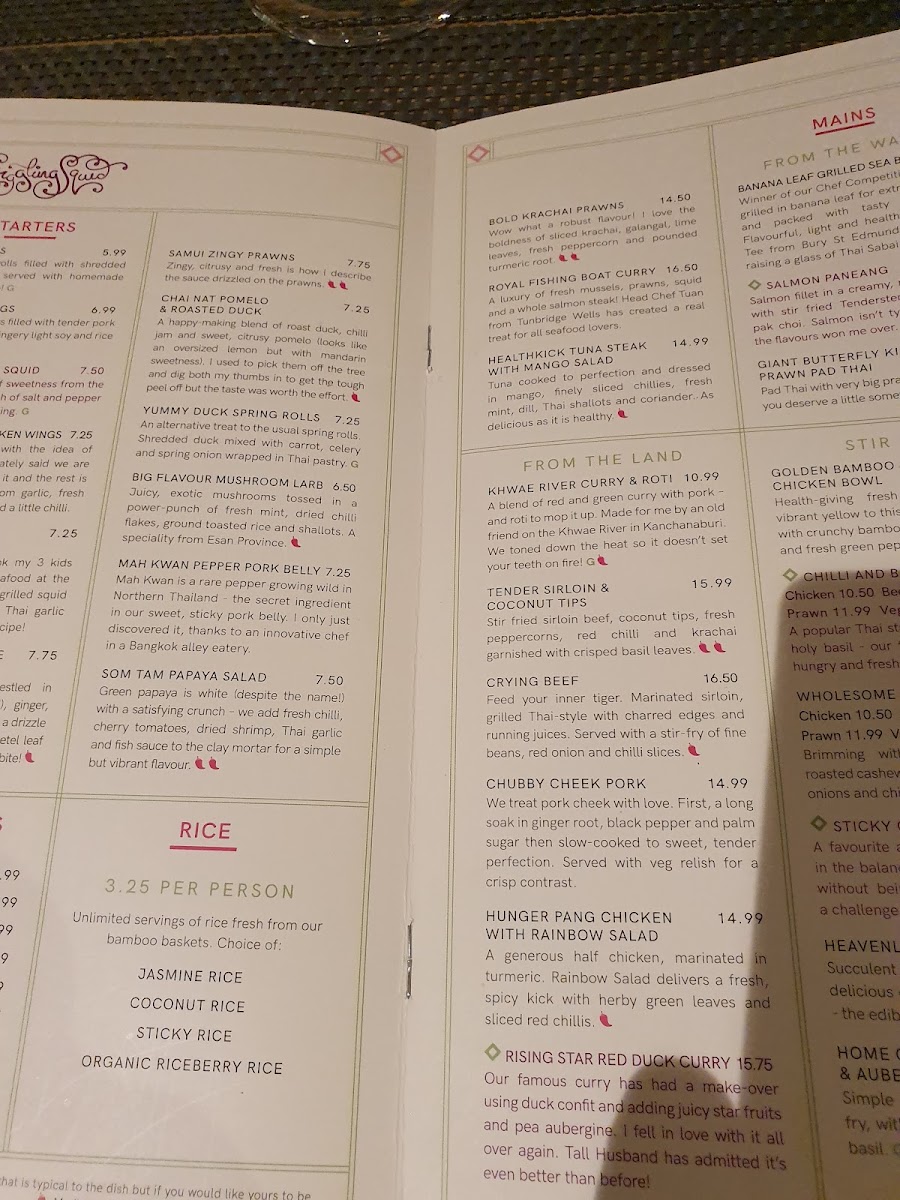 Giggling Squid
STARTERS
5.99
filled with shredded
served with homemade
G
6.99
filled with tender pork
light soy and rice
SQUID 7.50
sweetness from the
of salt and pepper
G
WINGS 7.25
with the idea of
said we are
it and the rest is
garlic, fresh
d a little chilli.
7.25
my 3 kids
at the
grilled squid
Thai garlic
7.75
in
ginger,
a drizzle
leaf
SAMUI ZINGY PRAWNS 7.75
Zingy, citrusy and fresh is how I describe
the sauce drizzled on the prawns.
CHAI NAT POMELO
& ROASTED DUCK 7.25
A happy-making blend of roast duck, chilli
jam and sweet, citrusy pomelo (looks like
an oversized lemon but with mandarin
sweetness). I used to pick them off the tree
and dig both my thumbs in to get the tough
peel off but the taste was worth the effort.
YUMMY DUCK SPRING ROLLS 7.25
An alternative treat to the usual spring rolls.
Shredded duck mixed with carrot, celery
and spring onion wrapped in Thai pastry. G
BIG FLAVOUR MUSHROOM LARB 6.50
Juicy, exotic mushrooms tossed in a
power-punch of fresh mint, dried chilli
flakes, ground toasted rice and shallots. A
speciality from Esan Province.
MAH KWAN PEPPER PORK BELLY 7.25
Mah Kwan is a rare pepper growing wild in
Northern Thailand - the secret ingredient
in our sweet, sticky pork belly. I only just
discovered it, thanks to an innovative chef
in a Bangkok alley eatery.
SOM TAM PAPAYA SALAD 7.50
Green papaya is white (despite the name!)
with a satisfying crunch - we add fresh chilli,
cherry tomatoes, dried shrimp, Thai garlic
and fish sauce to the clay mortar for a simple
but vibrant flavour.
RICE
3.25 PER PERSON
Unlimited servings of rice fresh from our
bamboo baskets. Choice of:
JASMINE RICE
COCONUT RICE
STICKY RICE
ORGANIC RICEBERRY RICE
that is typical to the dish but if you would like yours to be
BOLD KRACHAI PRAWNS 14.50
Wow what a robust flavour! I love the
boldness of sliced krachai, galangal, lime
leaves, fresh peppercorn and pounded
turmeric root.
ROYAL FISHING BOAT CURRY 16.50
A luxury of fresh mussels, prawns, squid
and a whole salmon steak! Head Chef Tuan
from Tunbridge Wells has created a real
treat for all seafood lovers.
HEALTHKICK TUNA STEAK 14.99
WITH MANGO SALAD
Tuna cooked to perfection and dressed
in mango, finely sliced chillies, fresh
mint, dill, Thai shallots and coriander. As
delicious as it is healthy.
FROM THE LAND
KHWAE RIVER CURRY & ROTI 10.99
A blend of red and green curry with pork -
and roti to mop it up. Made for me by an old
friend on the Khwae River in Kanchanaburi.
We toned down the heat so it doesn't set
your teeth on fire! G
TENDER SIRLOIN & 15.99
COCONUT TIPS
Stir fried sirloin beef, coconut tips, fresh
peppercorns, red chilli and krachai
garnished with crisped basil leaves.
CRYING BEEF 16.50
Feed your inner tiger. Marinated sirloin,
grilled Thai-style with charred edges and
running juices. Served with a stir-fry of fine
beans, red onion and chilli slices.
CHUBBY CHEEK PORK 14.99
We treat pork cheek with love. First, a long
soak in ginger root, black pepper and palm
sugar then slow-cooked to sweet, tender
perfection. Served with veg relish for a
crisp contrast.
HUNGER PANG CHICKEN 14.99
WITH RAINBOW SALAD
A generous half chicken, marinated in
turmeric. Rainbow Salad delivers a fresh,
spicy kick with herby green leaves and
sliced red chillis.
RISING STAR RED DUCK CURRY 15.75
Our famous curry has had a make-over
using duck confit and adding juicy star fruits
and pea aubergine. I fell in love with it all
over again. Tall Husband has admitted it's
even better than before!
MAINS
FROM THE WA
BANANA LEAF GRILLED SEA B
Winner of our Chef Competiti
grilled in banana leaf for extr
and packed with tasty
Flavourful, light and health
Tee from Bury St Edmund
raising a glass of Thai Sabai
SALMON PANEANG
Salmon fillet in a creamy,
with stir fried Tenderste
pak choi. Salmon isn't ty
the flavours won me over.
GIANT BUTTERFLY KI
PRAWN PAD THAI
Pad Thai with very big pra
you deserve a little some
STIR
GOLDEN BAMBOO
CHICKEN BOWL
Health-giving fresh
vibrant yellow to this
with crunchy bambo
and fresh green pep
CHILLI AND B
Chicken 10.50 Bee
Prawn 11.99 Veg
A popular Thai st
holy basil - our
hungry and fresh
WHOLESOME
Chicken 10.50
Prawn 11.99 V
Brimming with
roasted cashew
onions and chi
STICKY
A favourite a
in the balan
without bei
a challenge
HEAVENL
Succulent
delicious
- the edib
HOME
& AUBE
Simple
fry, wit
basil.